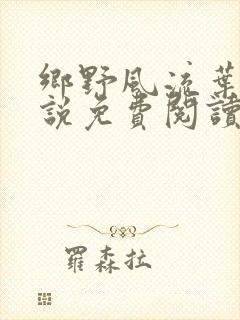 鄉野風流葉
說免費閱讀
羅森拉